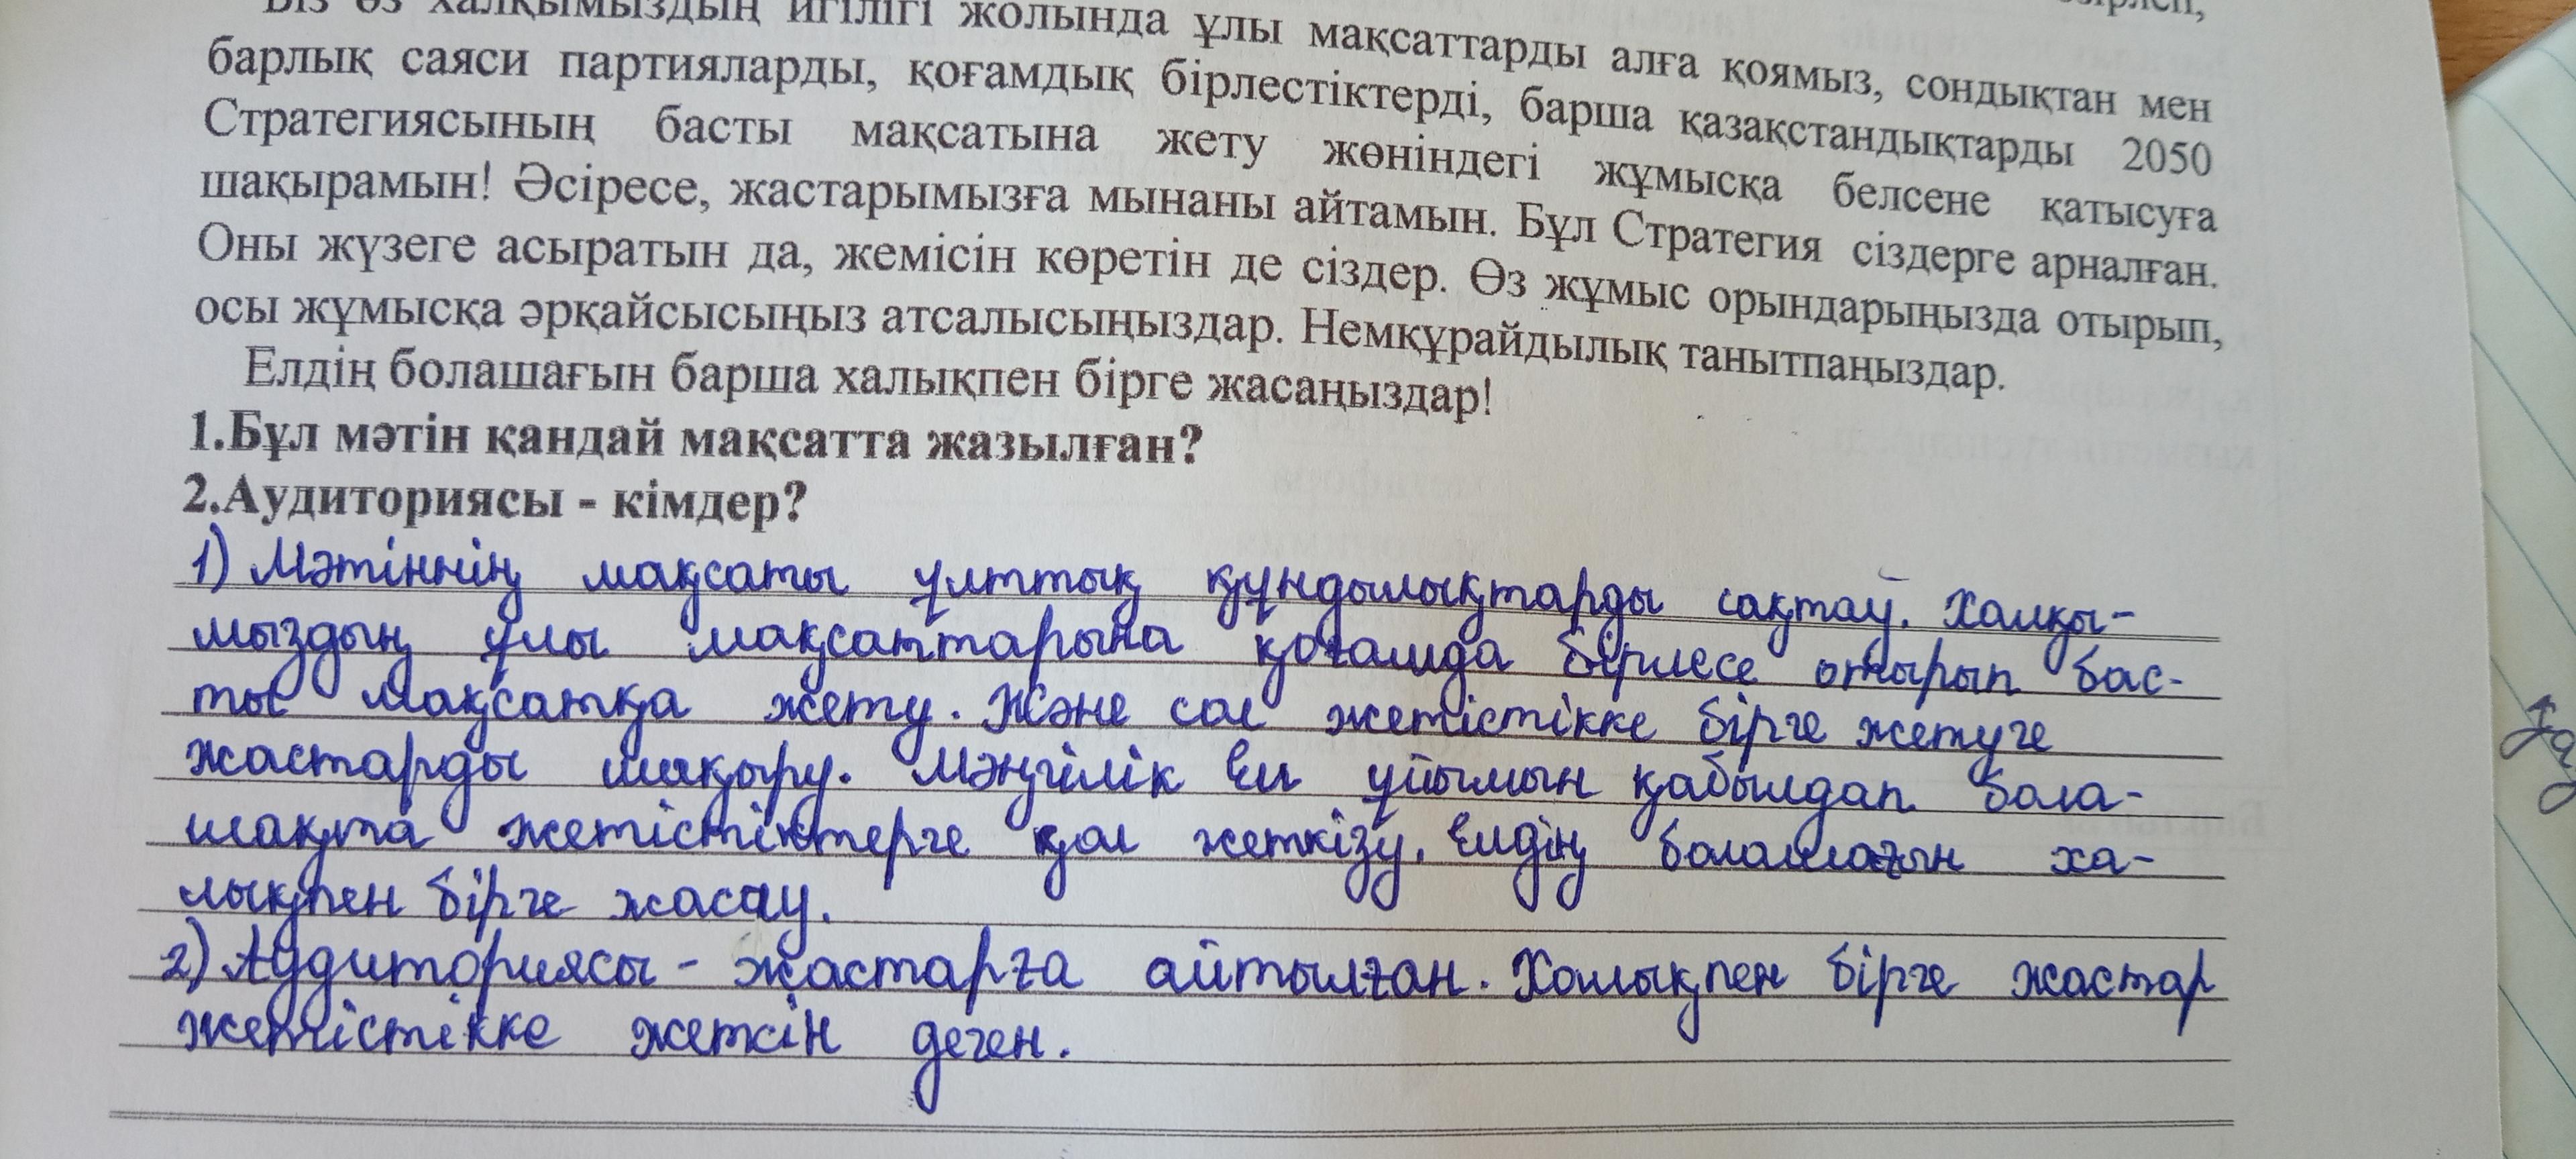 Біз өз халқымыздың игілігі жолында ұлы мақсаттарды алға қоямыз, сондықтан мен
барлық саяси партияларды, қоғамдық бірлестіктерді, барша қазақстандықтарды 2050
Стратегиясының басты мақсатына жету жөніндегі жұмысқа белсене қатысуға
шақырамын! Әсіресе, жастарымызға мынаны айтамын. Бұл Стратегия сіздерге арналған.
Оны жүзеге асыратын да, жемісін көретін де сіздер. Өз жұмыс орындарыңызда отырып,
осы жұмысқа әрқайсысыңыз атсалысыңыздар. Немқұрайдылық танытпаңыздар.
Елдің болашағын барша халықпен бірге жасаңыздар!
1.Бұл мәтін қандай мақсатта жазылған?
2.Аудиториясы - кімдер?
1) Мәтіннің мақсаты ұлттық құндылықтарды сақтау. Халқы-
мыздың ұлы мақсаттарына қоғамда бірлесе отырып бас-
ты мақсатқа жету. Және сол жетістікке бірге жетуге
жастарды шақыру. Мәңгілік Ел ұйымын қабылдап бола-
шақта жетістіктерге қол жеткізу. Елдің болашағын ха-
лықпен бірге жасау.
2) Аудиториясы - жастарға айтылған. Халықпен бірге жастар
жетістікке жетсін деген.